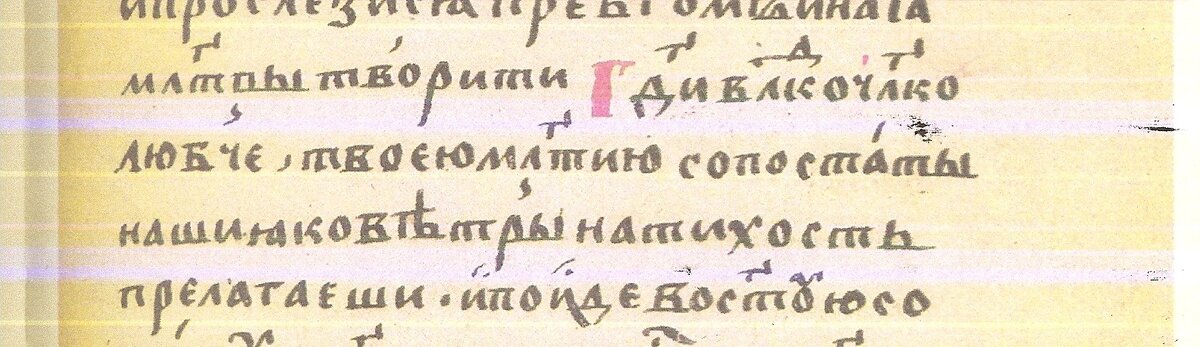 ипрослезисꙗ пребгомъ инача
млтвы творити Гди влко члко
любче , твоею млтию сопостаты
наши ꙗко вѣтры на тихость
прелагаеши . и пойде в остꙋю со